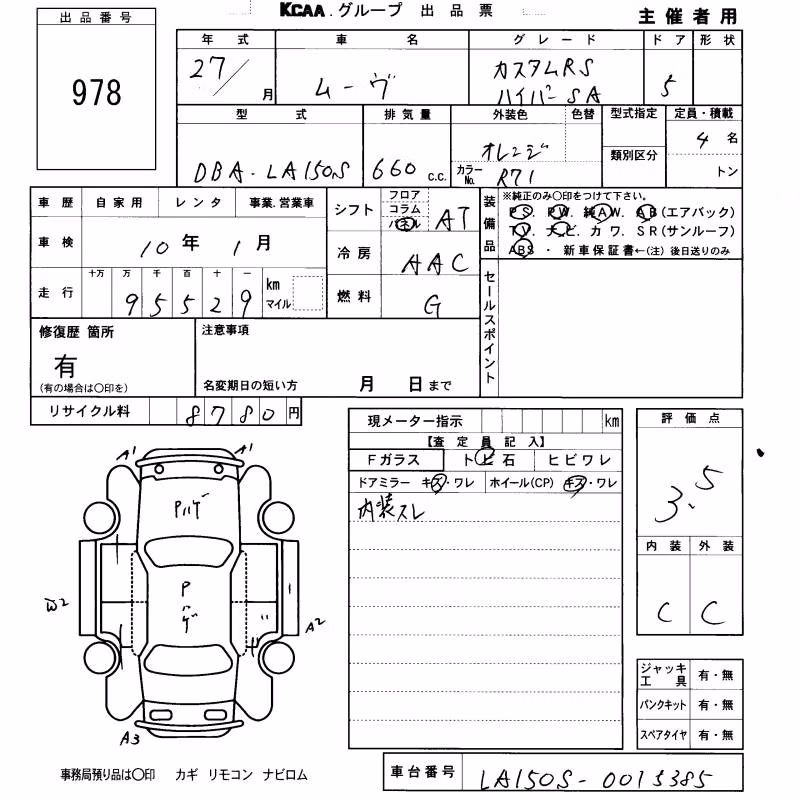 KCAA.グループ 出品票
主催者用
出品番号
978
年式 車名 グレード ドア 形状
27/ 月 ムーヴ カスタムRS ハイパーSA 5
型式 排気量 外装色 色替 型式指定 定員・積載
DBA-LA150S 660 c.c. オレンジ カラーNo. R71 類別区分 4 名
トン
車歴 自家用 レンタ 事業.営業車
車検 10年 1月
走行 十万 万 千 百 十 一
9 5 5 2 9 km マイル
シフト フロア コラム パネル AT
冷房 AAC
燃料 G
装備品 ※純正のみ○印をつけて下さい。
PS. PW. 純AW. AB(エアバック)
TV. ナビ. カワ. SR(サンルーフ)
ABS・新車保証書←(注)後日送りのみ
セールスポイント
修復歴 箇所
有
(有の場合は○印を)
注意事項
名変期日の短い方 月 日まで
リサイクル料 8780円
現メーター指示 km
【査定員記入】
Fガラス トビ石 ヒビワレ
ドアミラー キズ・ワレ ホイール(CP) キズ・ワレ
内装スレ
評価点
3.5
内装 外装
C C
A1 A1
Pハゲ
P
ハゲ
W2
A2
A3
ジャッキ工具 有・無
パンクキット 有・無
スペアタイヤ 有・無
事務局預り品は○印 カギ リモコン ナビロム
車台番号 LA150S-0013385